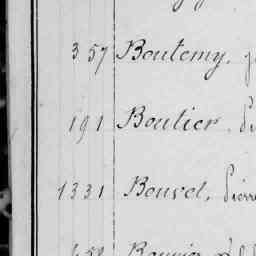 357 Boutemy,
191 Boutier,
1331 Bouvet, Pierre